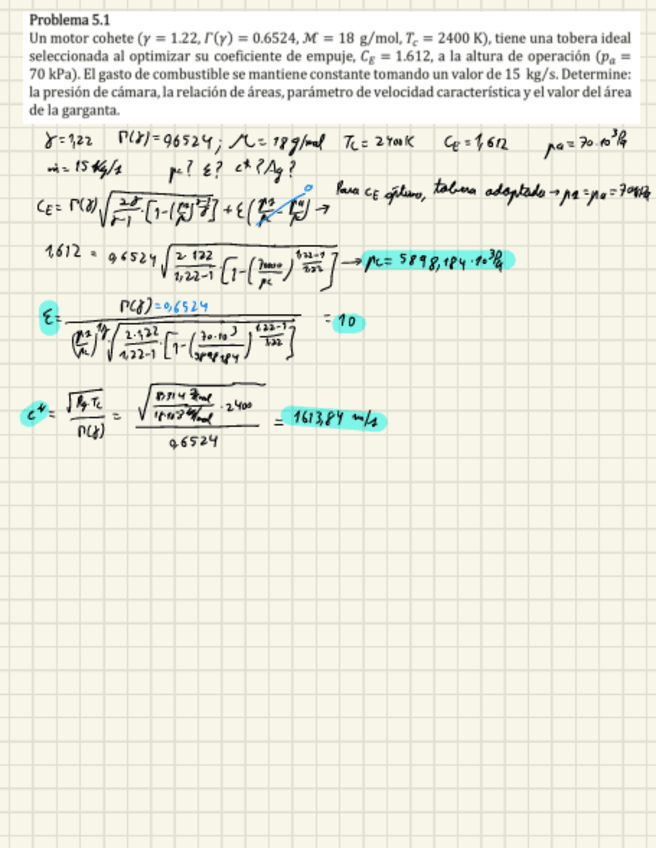 Problema 5.1
Un motor cohete (γ = 1.22, Γ(γ) = 0.6524, ℳ = 18 g/mol, T_c = 2400 K), tiene una tobera ideal
seleccionada al optimizar su coeficiente de empuje, C_E = 1.612, a la altura de operación (p_a =
70 kPa). El gasto de combustible se mantiene constante tomando un valor de 15 kg/s. Determine:
la presión de cámara, la relación de áreas, parámetro de velocidad característica y el valor del área
de la garganta.
γ=1,22 Γ(γ)=0,6524; M=18g/mol Tc=2400K CE=1,612 pa=70·10³Pa
ṁ=15 kg/s pc? ε? c*? Ag?
CE = Γ(γ) √(2γ/(γ-1) · [1-(ps/pc)^((γ-1)/γ)]) + ε(ps/pc - pa/pc) → 0 Para CE óptimo, tobera adaptada → ps=pa=70kPa
1,612 = 0,6524 √(2·1,22/(1,22-1) · [1-(70000/pc)^((1,22-1)/1,22)]) → pc = 5898,184·10³Pa
ε = Γ(γ)=0,6524 / ((ps/pc)^(1/γ) √(2·1,22/(1,22-1) · [1-(70·10³/5898184)^((1,22-1)/1,22)])) = 10
c* = √(Rg·Tc)/Γ(γ) = √(·2400)/0,6524 = 1613,84 m/s